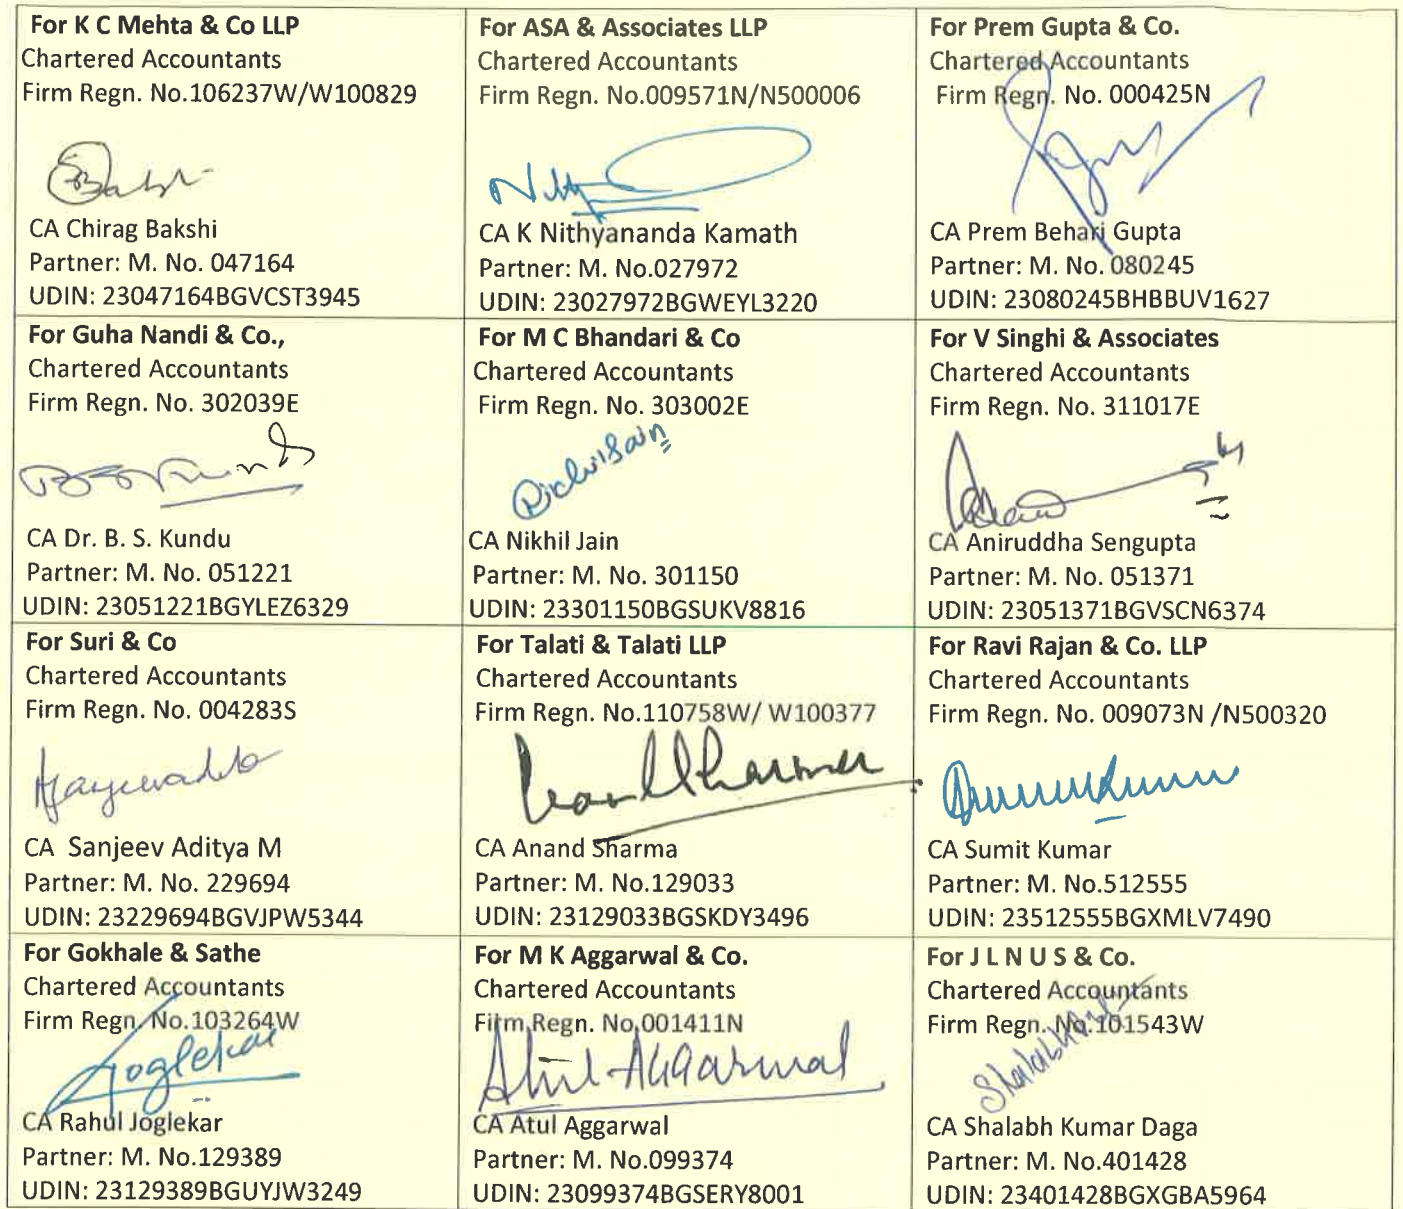 For K C Mehta & Co LLP
Chartered Accountants
Firm Regn. No.106237W/W100829
CA Chirag Bakshi
Partner: M. No. 047164
UDIN: 23047164BGVCST3945
For ASA & Associates LLP
Chartered Accountants
Firm Regn. No.009571N/N500006
CA K Nithyananda Kamath
Partner: M. No.027972
UDIN: 23027972BGWEYL3220
For Prem Gupta & Co.
Chartered Accountants
Firm Regn. No. 000425N
CA Prem Behari Gupta
Partner: M. No. 080245
UDIN: 23080245BHBBUV1627
For Guha Nandi & Co.,
Chartered Accountants
Firm Regn. No. 302039E
CA Dr. B. S. Kundu
Partner: M. No. 051221
UDIN: 23051221BGYLEZ6329
For M C Bhandari & Co
Chartered Accountants
Firm Regn. No. 303002E
CA Nikhil Jain
Partner: M. No. 301150
UDIN: 23301150BGSUKV8816
For V Singhi & Associates
Chartered Accountants
Firm Regn. No. 311017E
CA Aniruddha Sengupta
Partner: M. No. 051371
UDIN: 23051371BGVSCN6374
For Suri & Co
Chartered Accountants
Firm Regn. No. 004283S
CA Sanjeev Aditya M
Partner: M. No. 229694
UDIN: 23229694BGVJPW5344
For Talati & Talati LLP
Chartered Accountants
Firm Regn. No.110758W/ W100377
CA Anand Sharma
Partner: M. No.129033
UDIN: 23129033BGSKDY3496
For Ravi Rajan & Co. LLP
Chartered Accountants
Firm Regn. No. 009073N /N500320
CA Sumit Kumar
Partner: M. No.512555
UDIN: 23512555BGXMLV7490
For Gokhale & Sathe
Chartered Accountants
Firm Regn. No.103264W
Joglekar
CA Rahul Joglekar
Partner: M. No.129389
UDIN: 23129389BGUYJW3249
For M K Aggarwal & Co.
Chartered Accountants
Firm Regn. No.001411N
Atul Aggarwal
CA Atul Aggarwal
Partner: M. No.099374
UDIN: 23099374BGSERY8001
For J L N U S & Co.
Chartered Accountants
Firm Regn. No.101543W
CA Shalabh Kumar Daga
Partner: M. No.401428
UDIN: 23401428BGXGBA5964